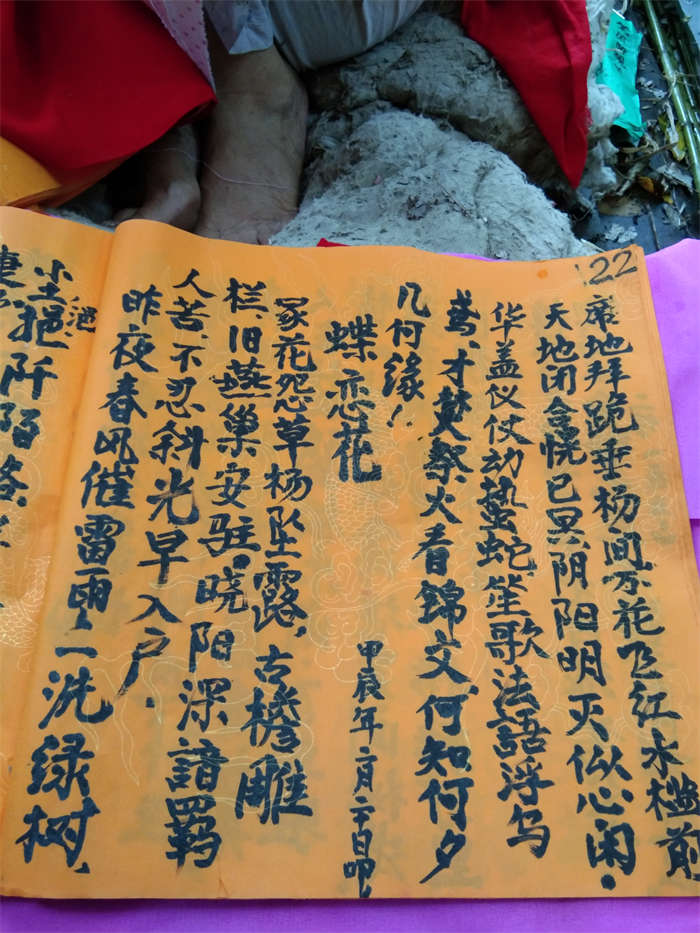 22
席地拜跪垂杨间,不花飞红水槛前
天地闭合恍已冥,阴阳明灭似心闲。
华盖仪仗动蛰蛇,笙歌法語浮乌
鸢,才焚祭火看锦文,何知何夕
几何缘!
蝶恋花
甲辰年二月二日叩!
冢花怨草杨坠露,古檐雕
栏、旧燕巢安驻。晓阳深諳羁
人苦、不忍斜光早入户。
昨夜春风催雷雨、一洗绿树、
尘 阡陌